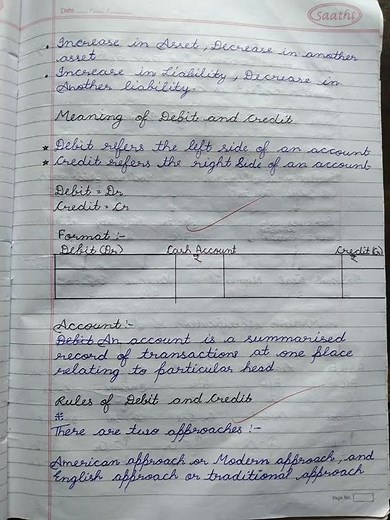 Date
Saathi
• Increase in Asset, Decrease in another
asset
• Increase in Liability, Decrease in
Another liability.
Meaning of Debit and Credit
* Debit refers the left side of an account
* Credit refers the right Side of an account
Debit = Dr
Credit = Cr
Format :-
Debit (Dr) Cash Account Credit (Cr)
₹ ₹
Account :-
Debit An account is a summarised
record of transactions at one place
relating to particular head
Rules of Debit and Credit
*
There are two approaches :-
American approach or Modern approach, and
English approach or traditional approach
Page No.